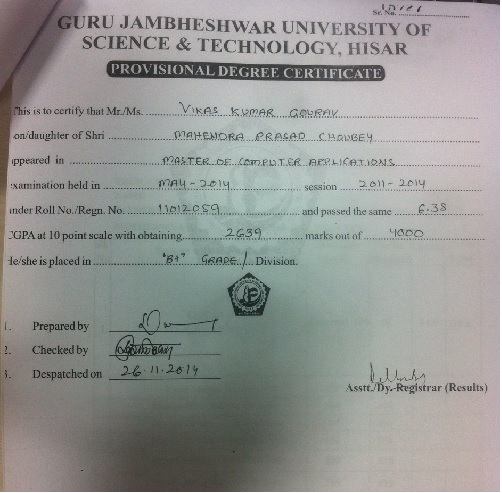 Sr. No.
GURU JAMBHESHWAR UNIVERSITY OF
SCIENCE & TECHNOLOGY, HISAR
PROVISIONAL DEGREE CERTIFICATE
This is to certify that Mr./Ms. VIKAS KUMAR GOURAV
on/daughter of Shri MAHENDRA PRASAD CHOUBEY
ppeared in MASTER OF COMPUTER APPLICATIONS
xamination held in MAY-2014 session 2011-2014
nder Roll No./Regn. No. 11012059 and passed the same 6.38
CGPA at 10 point scale with obtaining 2639 marks out of 4000
He/she is placed in "B+" GRADE/ Division.
1. Prepared by
2. Checked by
3. Despatched on 26.11.2014
Asstt./Dy. Registrar (Results)